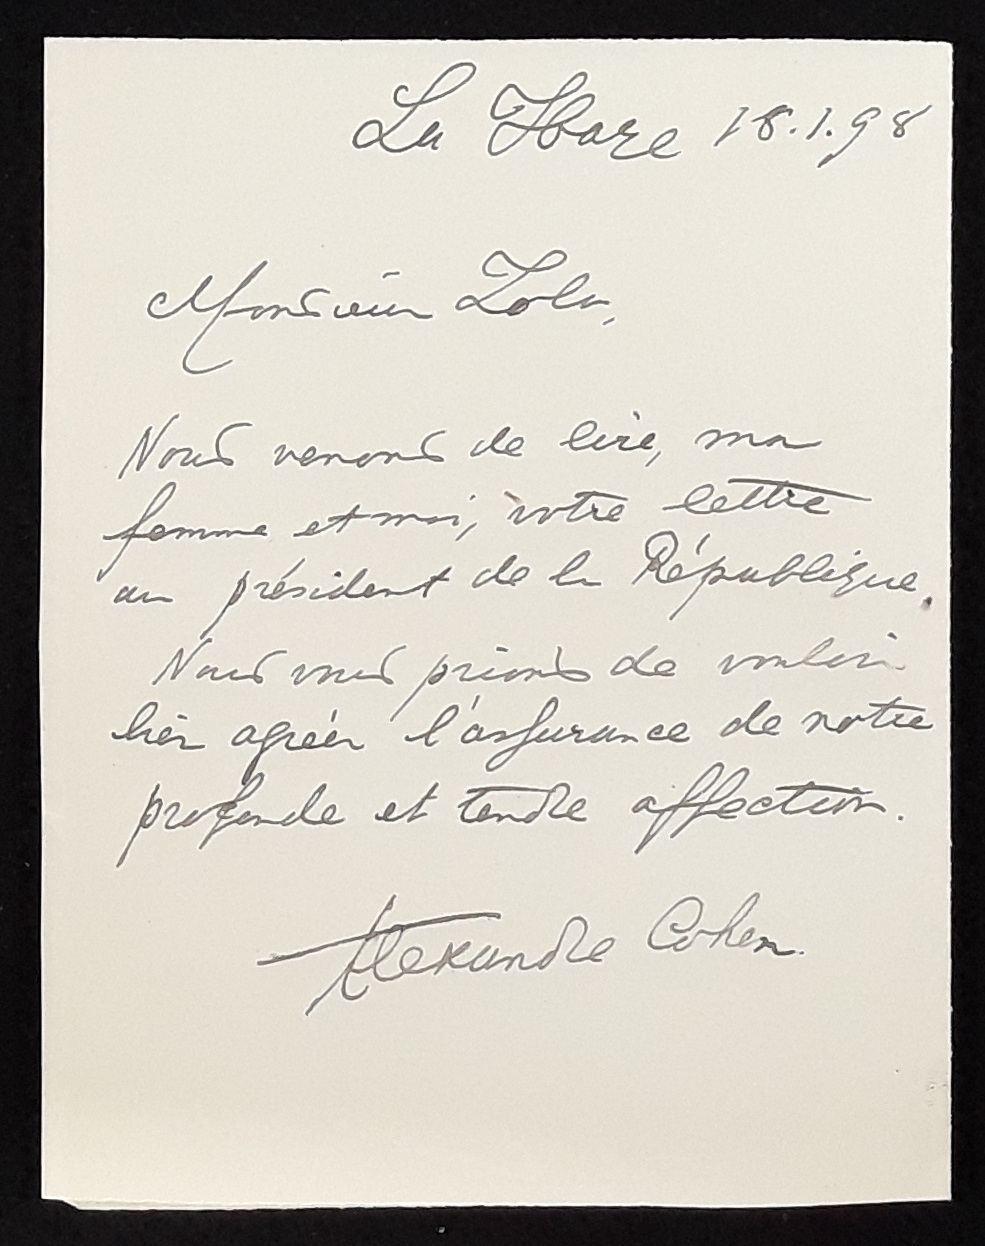 La Haye 18.1.98
Monsieur Zola,
Nous venons de lire, ma
femme et moi, votre lettre
au président de la République.
Nous vous prions de vouloir
bien agréer l'assurance de notre
profonde et tendre affection.
Alexandre Cohen.